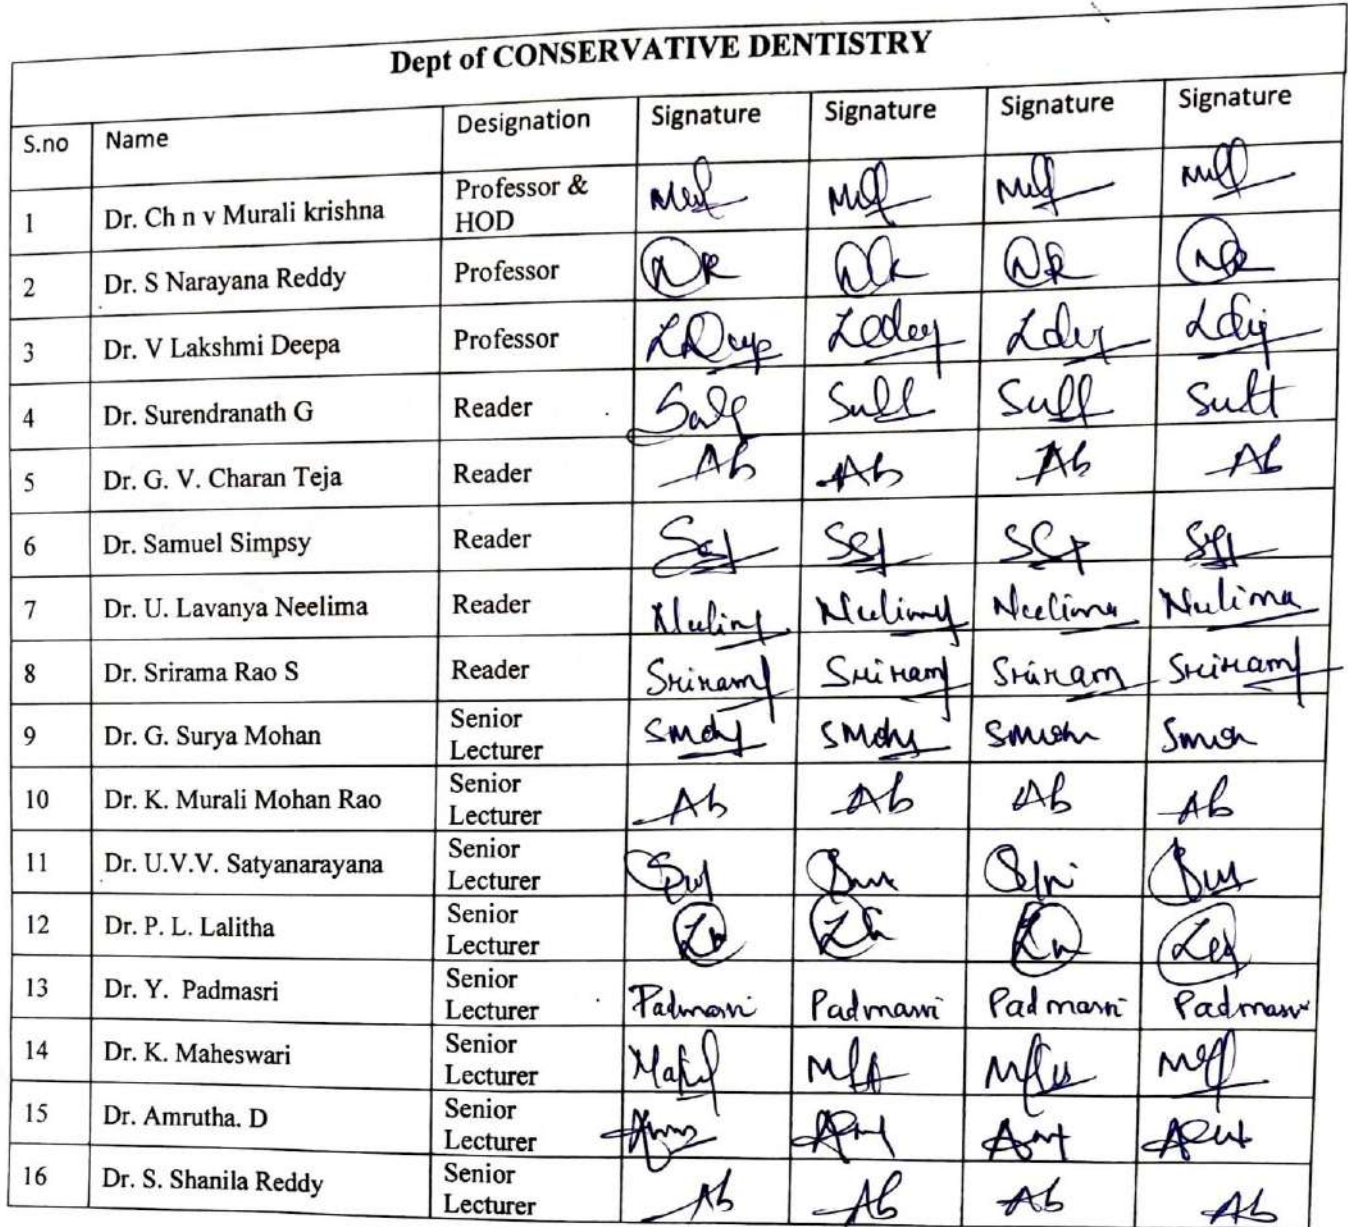 Dept of CONSERVATIVE DENTISTRY
S.no Name Designation Signature Signature Signature Signature
1 Dr. Ch n v Murali krishna Professor & HOD
2 Dr. S Narayana Reddy Professor NR NR
3 Dr. V Lakshmi Deepa Professor
4 Dr. Surendranath G Reader
5 Dr. G. V. Charan Teja Reader Ab Ab Ab Ab
6 Dr. Samuel Simpsy Reader
7 Dr. U. Lavanya Neelima Reader Neelima Neelima
8 Dr. Srirama Rao S Reader Sriram Sriram Sriram Sriram
9 Dr. G. Surya Mohan Senior Lecturer
10 Dr. K. Murali Mohan Rao Senior Lecturer Ab Ab Ab Ab
11 Dr. U.V.V. Satyanarayana Senior Lecturer
12 Dr. P. L. Lalitha Senior Lecturer
13 Dr. Y. Padmasri Senior Lecturer Padmasri Padmasri Padmasri Padmasri
14 Dr. K. Maheswari Senior Lecturer
15 Dr. Amrutha. D Senior Lecturer
16 Dr. S. Shanila Reddy Senior Lecturer Ab Ab Ab Ab